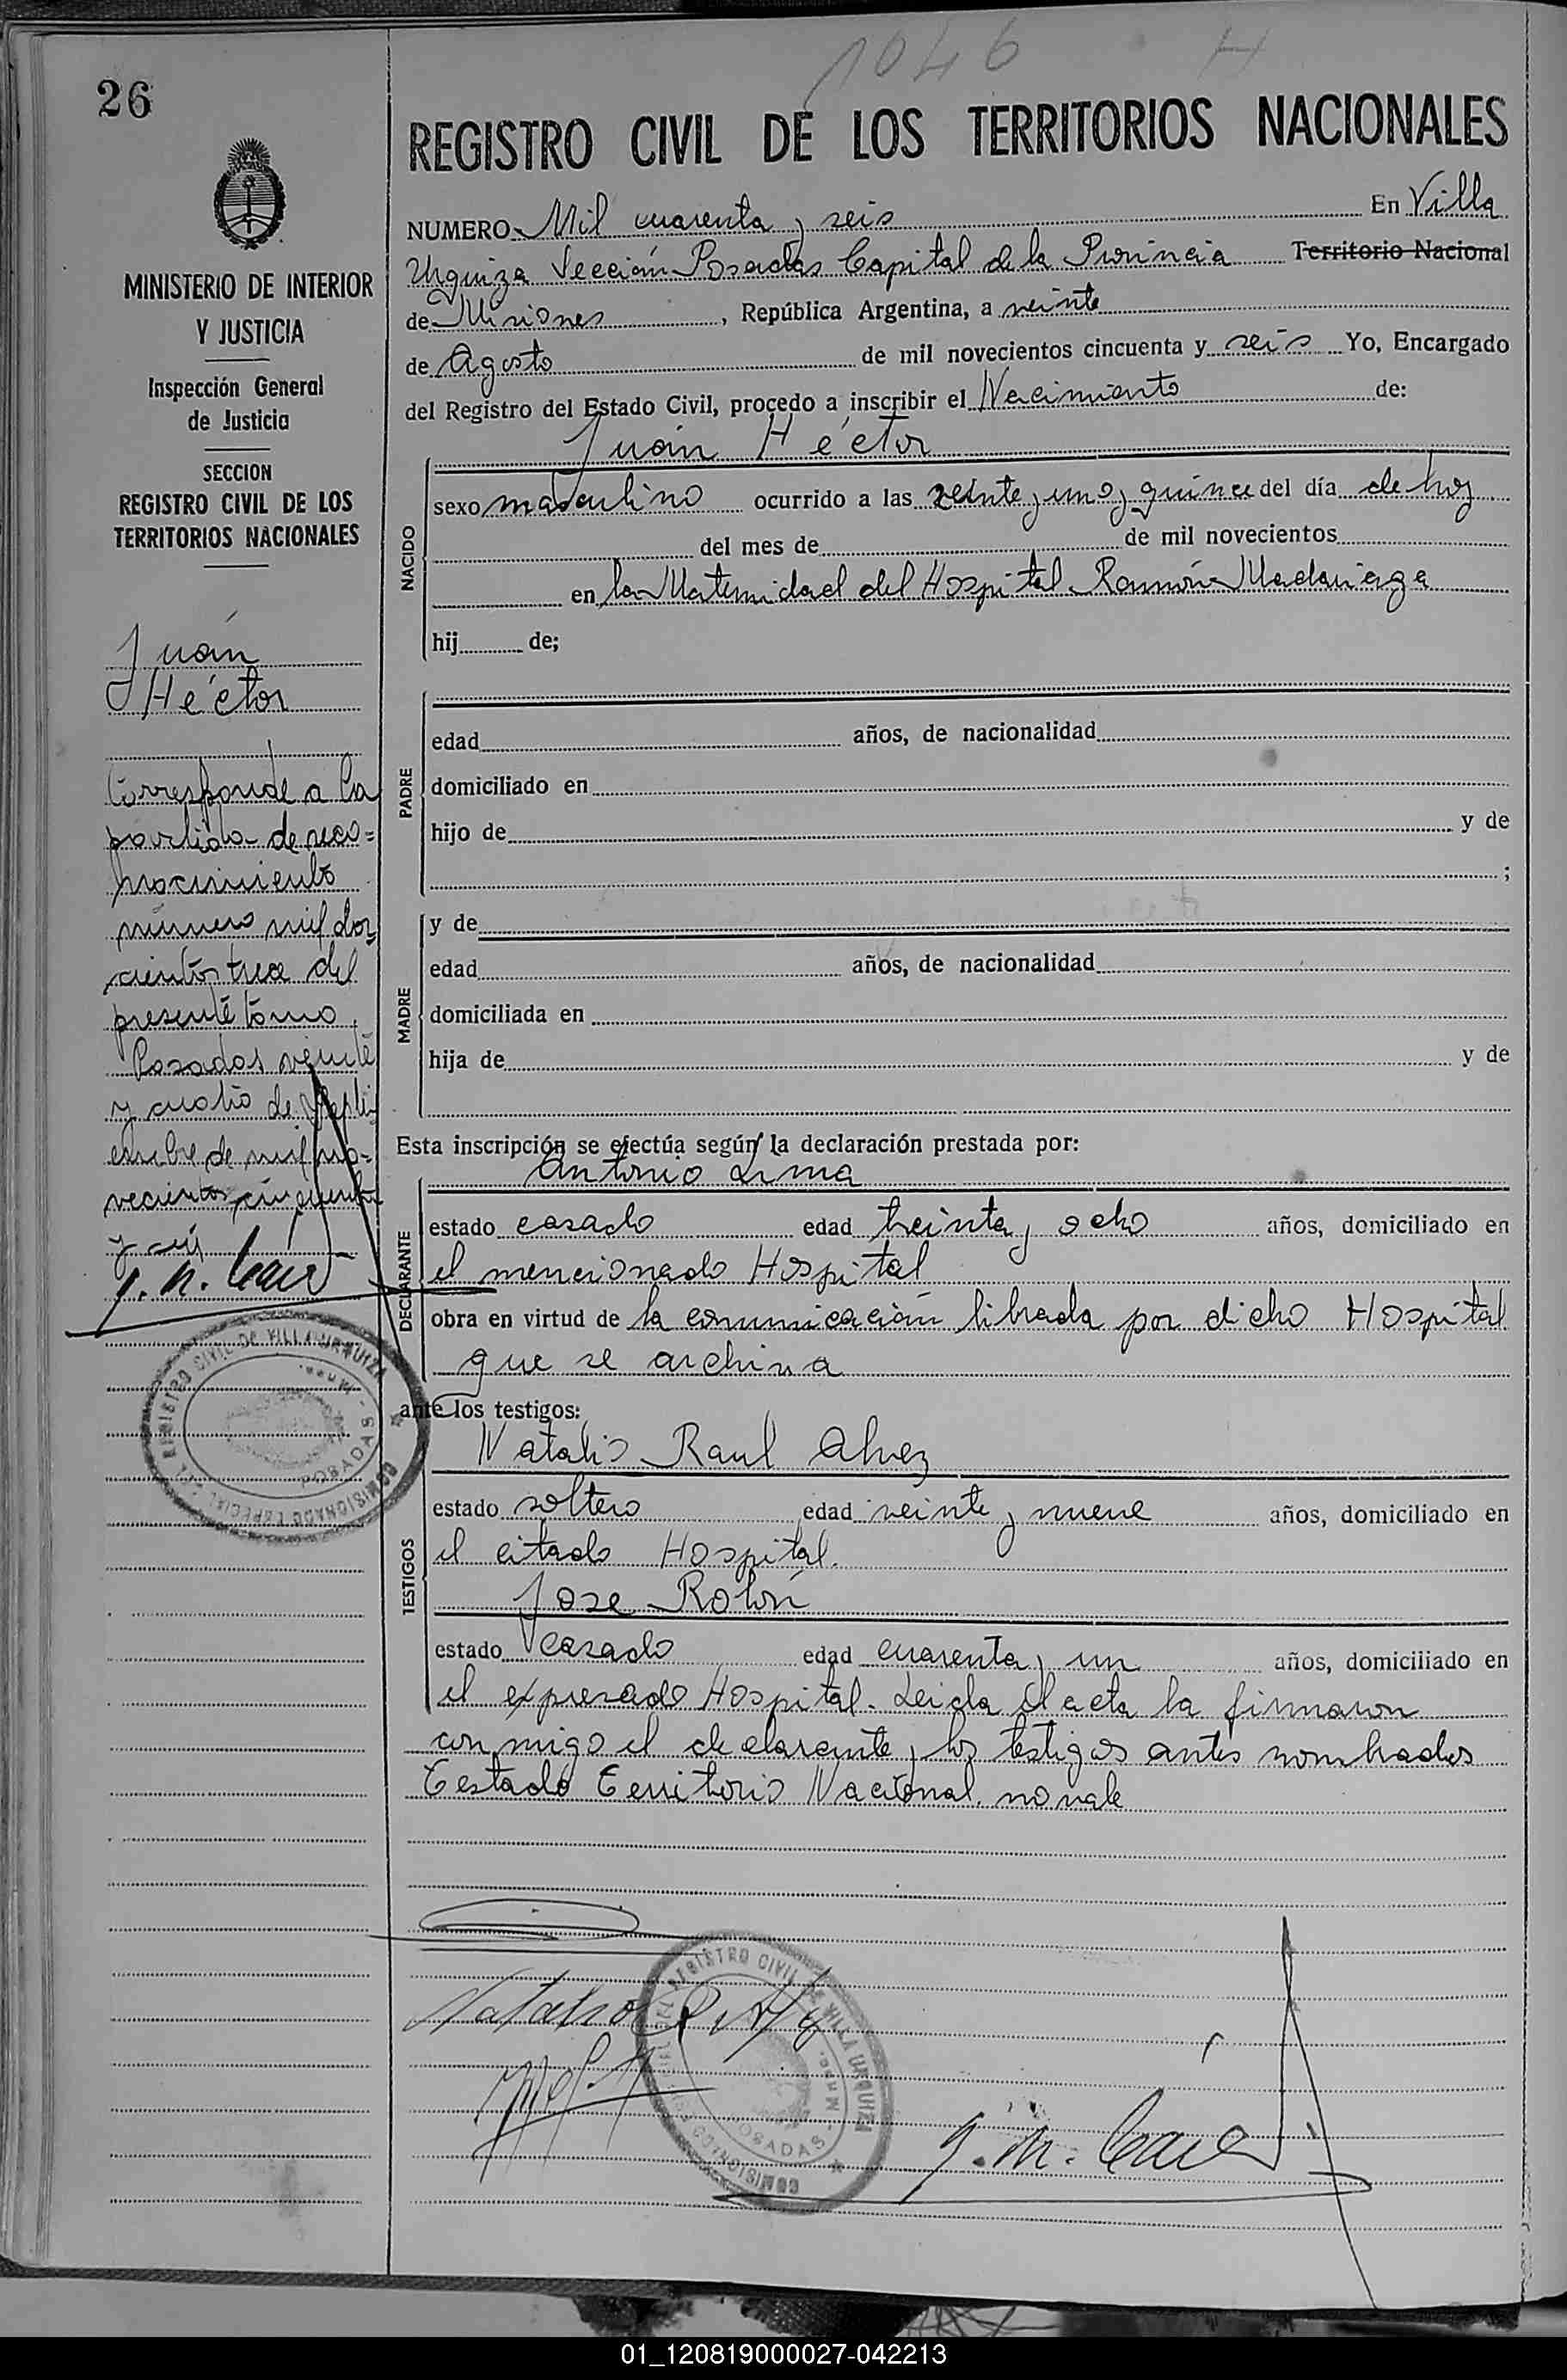 1046 H
26
REGISTRO CIVIL DE LOS TERRITORIOS NACIONALES
MINISTERIO DE INTERIOR
Y JUSTICIA
Inspección General
de Justicia
SECCION
REGISTRO CIVIL DE LOS
TERRITORIOS NACIONALES
Juán
Héctor
Corresponde a la
partida de reco=
nocimiento
número mil dos
cientos trece del
presente tomo
Posadas veinte
y cuatro de Septi
embre de mil no=
vecientos cincuenta
y seis
NUMERO Mil cuarenta y seis En Villa
Urquiza Sección Posadas Capital de la Provincia Territorio Nacional
de Misiones, República Argentina, a veinte
de Agosto de mil novecientos cincuenta y seis Yo, Encargado
del Registro del Estado Civil, procedo a inscribir el Nacimiento de:
Juán Héctor
NACIDO
sexo masculino ocurrido a las veinte y uno y quince del día de hoy
del mes de de mil novecientos
en la Maternidad del Hospital Ramón Madariaga
hij de;
PADRE
edad años, de nacionalidad
domiciliado en
hijo de y de
;
MADRE
y de
edad años, de nacionalidad
domiciliada en
hija de y de
Esta inscripción se efectúa según la declaración prestada por:
Antonio Lima
DECLARANTE
estado casado edad treinta y ocho años, domiciliado en
el mencionado Hospital
obra en virtud de la comunicación librada por dicho Hospital
que se archiva
ante los testigos:
Natalio Raul Alvez
TESTIGOS
estado soltero edad veinte y nueve años, domiciliado en
el citado Hospital.
Jose Rolón
estado casado edad cuarenta y un años, domiciliado en
el expresado Hospital. Leida el acta la firmaron
con migo el declarante y los testigos antes nombrados
Testado Territorio Nacional. no vale
REGISTRO CIVIL DE VILLA URQUIZA
POSADAS - Mnes.
COMISIONADO ESPECIAL
REGISTRO CIVIL DE VILLA URQUIZA
POSADAS - Mnes.
01_120819000027-042213